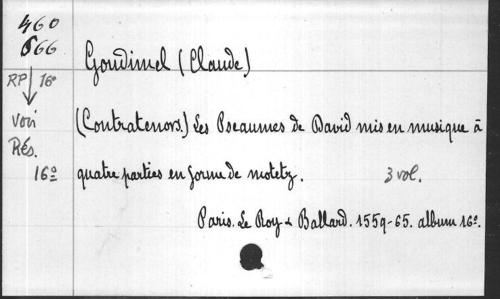 460
666
RP 16º
voir
Rés.
16º
Goudimel (Claude)
(Contratenors.) Les Pseaumes de David mis en musique à
quatre parties en forme de motetz. 3 vol.
Paris. Le Roy & Ballard. 1559-65. album 16º.